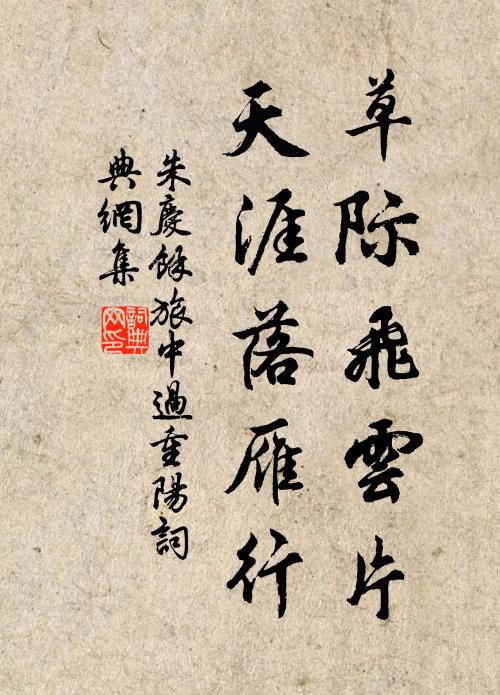 草际飛雲片
天涯落雁行
朱慶餘旅中過重陽詞
典網集
詞典
网印